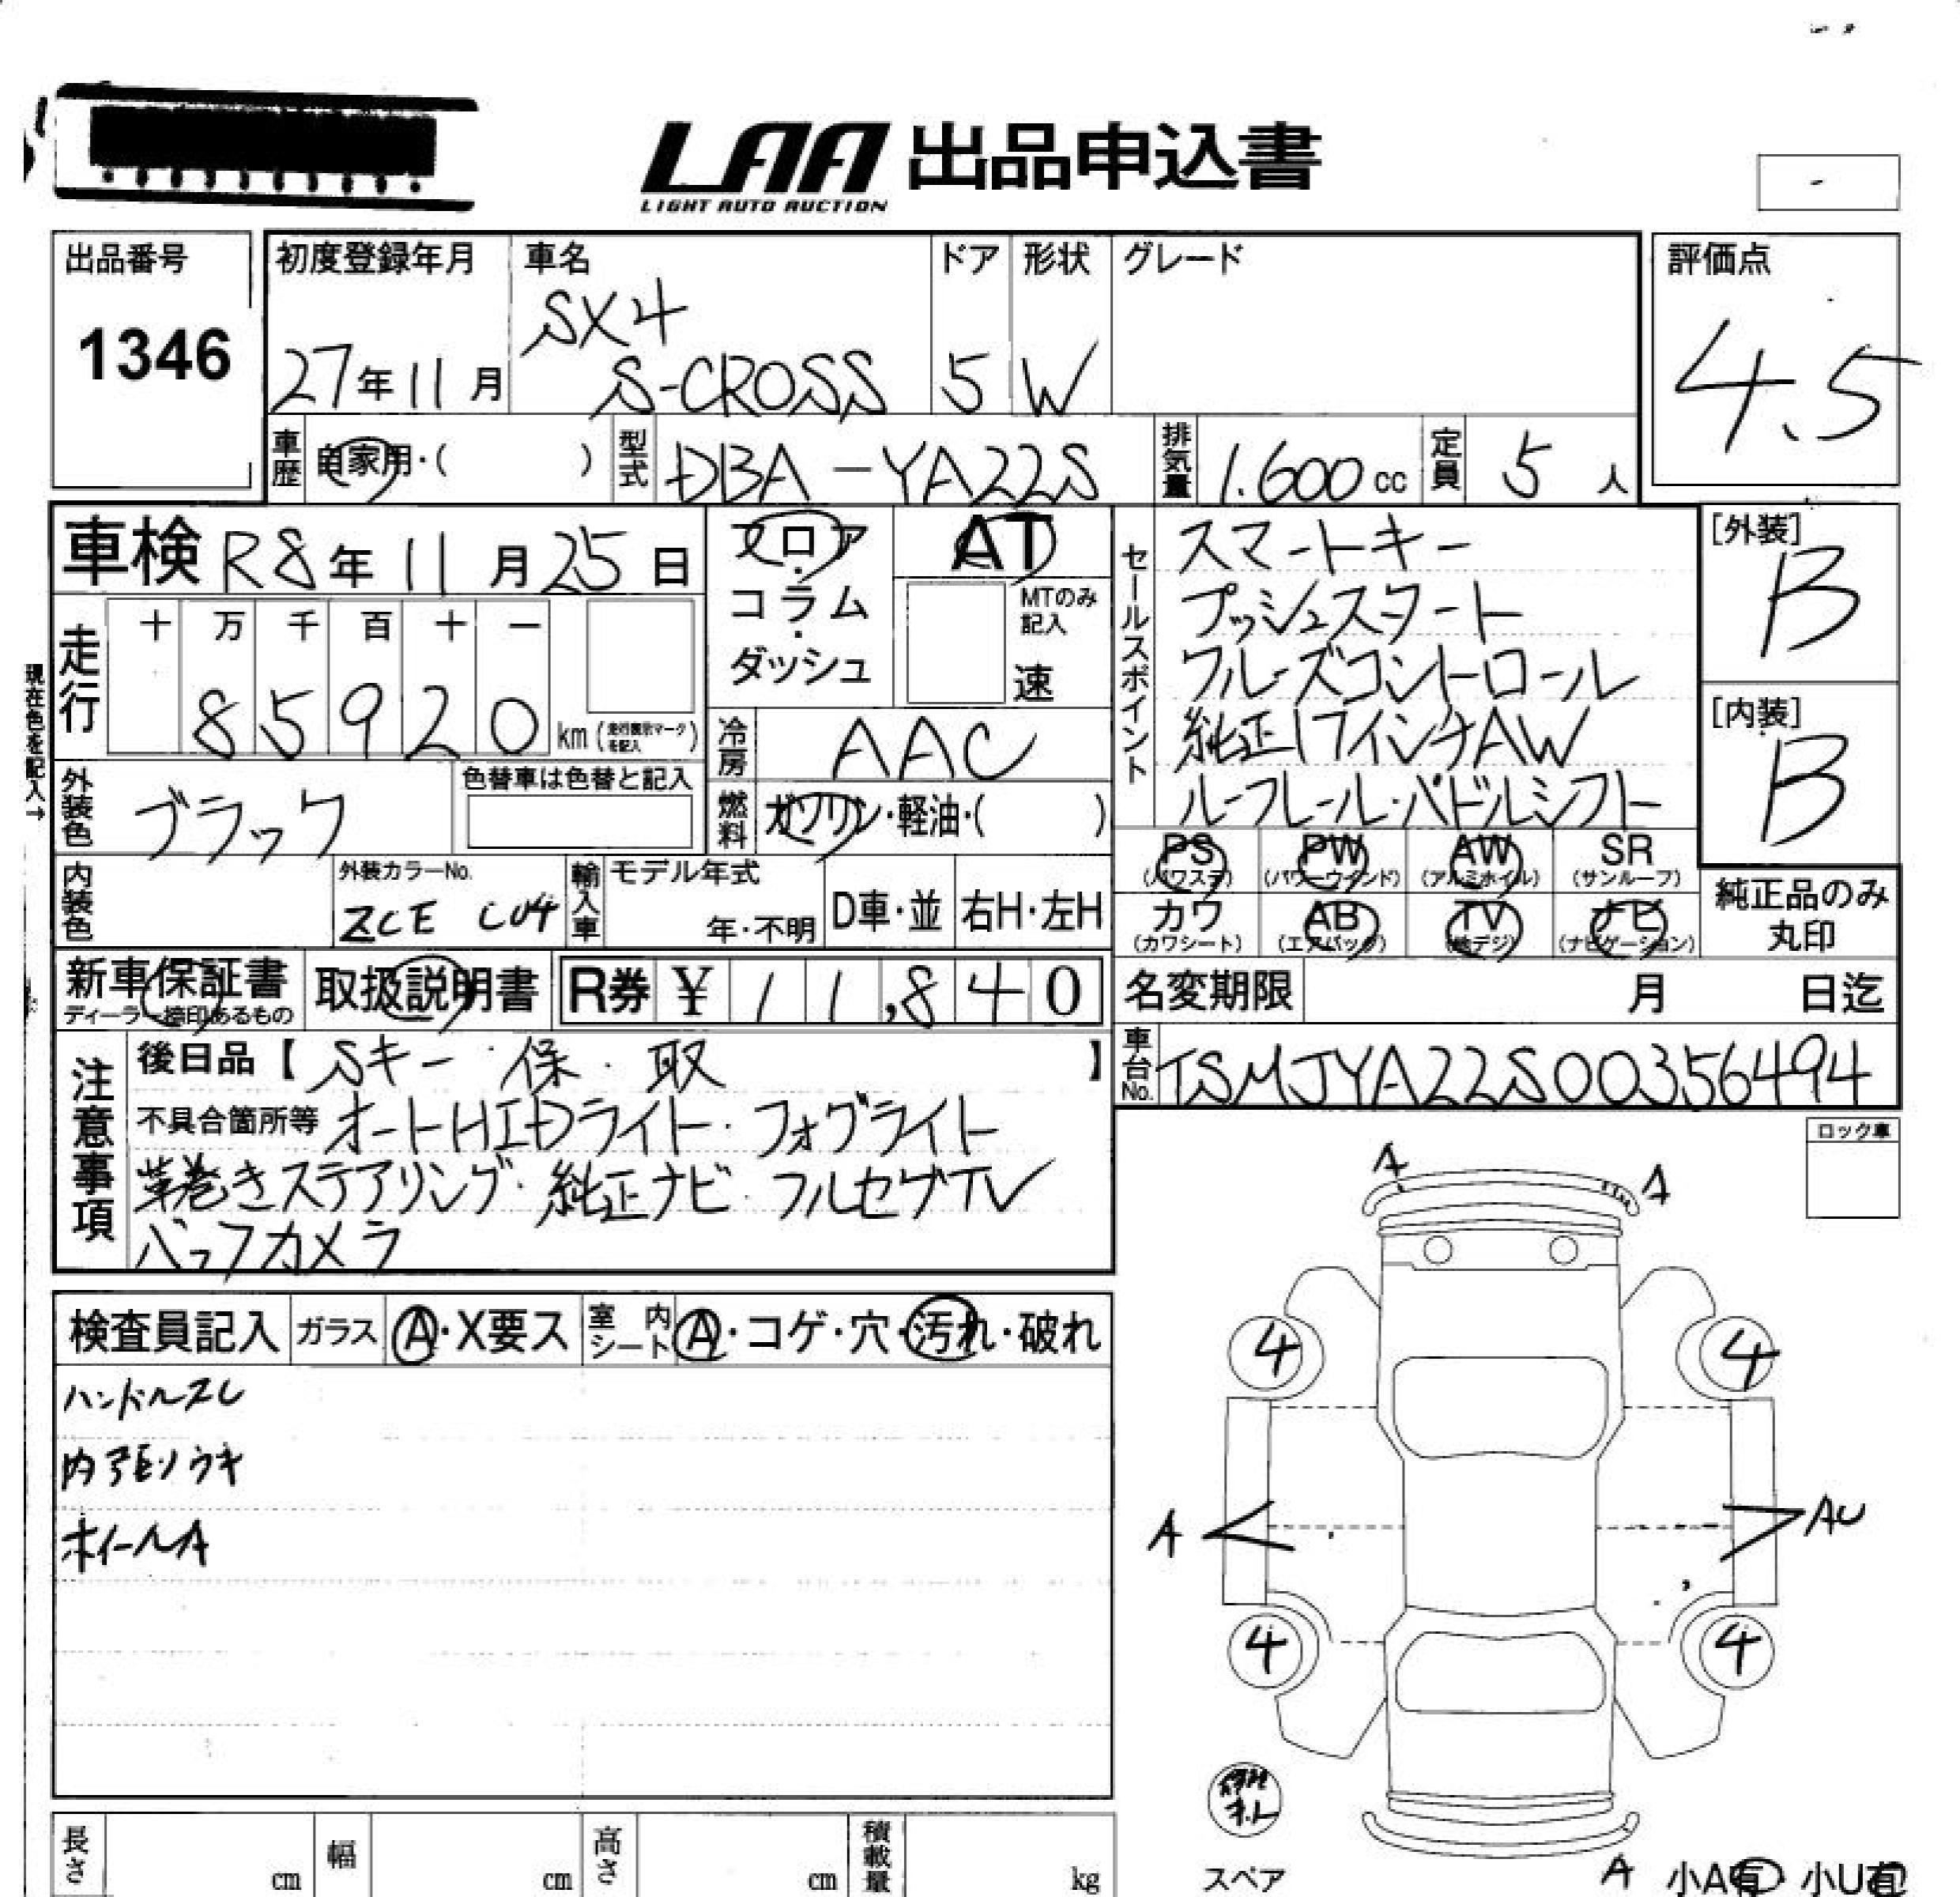 LAA 出品申込書
LIGHT AUTO AUCTION
出品番号
1346
初度登録年月
27年11月
車名
SX4
S-CROSS
ドア
5
形状
W
グレード
評価点
4.5
車歴
自家用・( )
型式
DBA-YA22S
排気量
1.600cc
定員
5人
車検 R8年11月25日
フロア・コラム・ダッシュ
AT
MTのみ記入
速
走行
十 万 千 百 十 一
85920 km (走行表示マークを記入)
現在色を記入→
外装色
ブラック
色替車は色替と記入
冷房
AAC
燃料
ガソリン・軽油・( )
内装色
外装カラーNo.
ZCE C04
輸入車
モデル年式
年・不明
D車・並
右H・左H
セールスポイント
スマートキー
プッシュスタート
クルーズコントロール
純正17インチAW
ルーフレール・パドルシフト
[外装]
B
[内装]
B
PS (パワステ)
PW (パワーウインド)
AW (アルミホイル)
SR (サンルーフ)
カワ (カワシート)
AB (エアバッグ)
TV (地デジ)
ナビ (ナビゲーション)
純正品のみ丸印
新車保証書
ディーラー捺印あるもの
取扱説明書
R券 ¥11,840
名変期限 月 日迄
車台No.
TSMJYA22S00356494
注意事項
後日品【Sキー・保・取】
不具合箇所等 オートHIDライト・フォグライト
革巻きステアリング・純正ナビ・フルセグTV
バックカメラ
ロック車
検査員記入
ガラス
A・X要ス
室内シート
A・コゲ・穴・汚れ・破れ
ハンドルスレ
内張リウキ
ホイールA
A
A
4
4
A
AU
4
4
スペア
A
小A有 小U有
長さ cm
幅 cm
高さ cm
積載量 kg